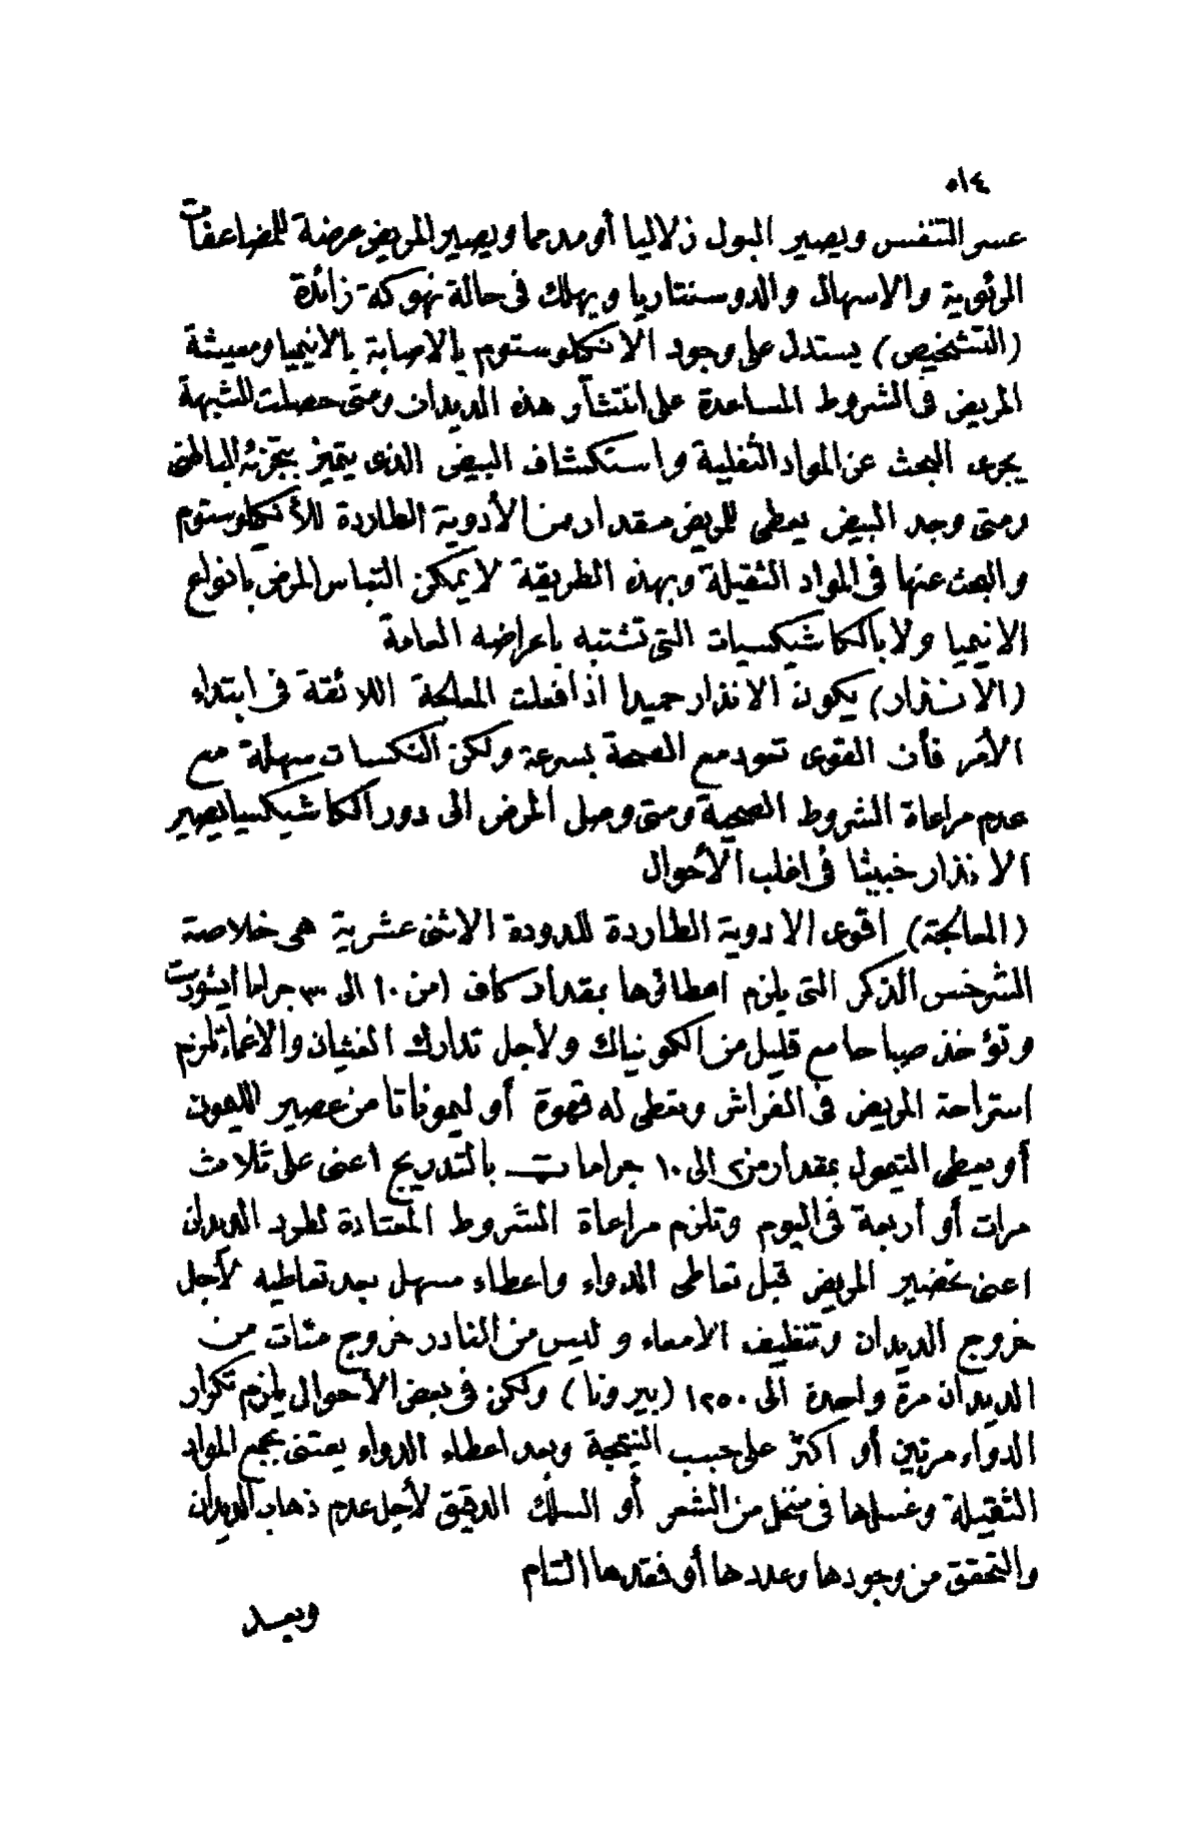 ٥١٤
عسر التنفس ويصير البول زلاليا أو مدمما ويصير المريض عرضة للمضاعفات
الرئوية والاسهال والدوسنتاريا ويهلك فى حالة نهوكة زائدة
(التشخيص) يستدل على وجود الانكلوستوم بالاصابة بالانيميا ومعيشة
المريض فى الشروط المساعدة على انتشار هذه الديدان ومتى حصلت الشبهة
يجرى البحث عن المواد الثفلية واستكشاف البيض الذى يتميز بتجزئه الباطنى
ومتى وجد البيض يعطى للمريض مقدار من الأدوية الطاردة للأنكلوستوم
والبحث عنها فى المواد الثفيلة وبهذه الطريقة لا يمكن التباس المرض بانواع
الانيميا ولا بالكاشيكسيات التى تشتبه باعراضه العامة
(الانذار) يكون الانذار حميدا اذا فعلت المعالجة اللائقة فى ابتداء
الأمر فأن القوى تعود مع الصحة بسرعة ولكن النكسات سهلة مع
عدم مراعاة الشروط الصحية ومتى وصل المرض الى دور الكاشيكسيا يصير
الانذار خبيثا فى اغلب الأحوال
(المعالجة) اقوى الادوية الطاردة للدودة الاثنى عشرية هى خلاصة
السرخس الذكر التى يلزم اعطاؤها بمقدار كاف (من ١٠ الى ٣٠ جراما
وتؤخذ صباحا مع قليل من الكونياك ولأجل تدارك الغثيان والاغماء تلزم
استراحة المريض فى الفراش ويعطى له قهوة أو ليموناتا من عصير الليمون
أو يعطى التيمول بمقدار من ٢ الى ١٠ جرامات بالتدريج اعنى على ثلاث
مرات أو أربعة فى اليوم وتلزم مراعاة الشروط المعتادة لطرد الديدان
اعنى تحضير المريض قبل تعاطى الدواء واعطاء مسهل بعد تعاطيه لأجل
خروج الديدان وتنظيف الامعاء وليس من النادر خروج مئات من
الديدان مرة واحدة الى ١٢٥٠ (بيرونا) ولكن فى بعض الأحوال يلزم تكرار
الدواء مرتين أو اكثر على حسب النتيجة وبعد اعطاء الدواء يعتنى بجمع المواد
الثفيلة وغسلها فى منخل من الشعر أو السلك الدقيق لأجل عدم ذهاب الديدان
والتحقق من وجودها وعددها أو فقدها التام
وبعد